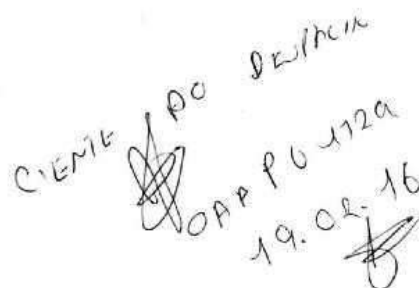 CIENTE DO DESPACHO
OAB PB 1129
19.02.16